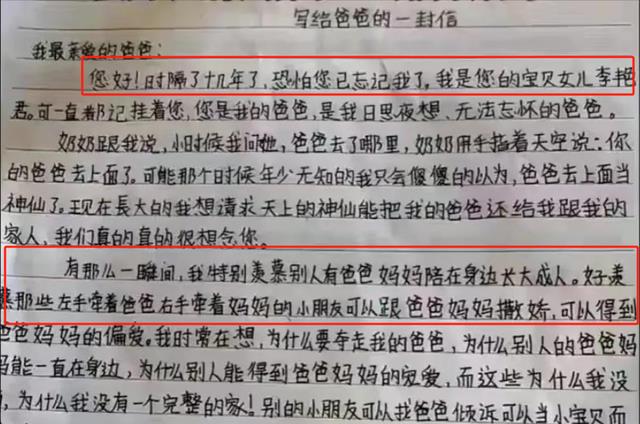 写给爸爸的一封信
我最亲爱的爸爸:
您好!时隔了十几年了,恐怕您已忘记我了。我是您的宝贝女儿李艳
君。可一直都记挂着您,您是我的爸爸,是我日思夜想、无法忘怀的爸爸。
奶奶跟我说,小时候我问她,爸爸去了哪里,奶奶用手指着天空说:你
的爸爸去上面了。可能那个时候年少无知的我只会傻傻的以为,爸爸去上面当
神仙了。现在長大的我想请求天上的神仙能把我的爸爸还给我跟我的
家人,我们真的真的很想念您。
有那么一瞬间,我特别羡慕别人有爸爸妈妈陪在身边长大成人。好羡
慕那些左手牵着爸爸右手牵着妈妈的小朋友可以跟爸爸妈妈撒娇,可以得到
爸爸妈妈的偏爱。我时常在想,为什么要夺走我的爸爸,为什么别人的爸爸妈
妈能一直在身边,为什么别人能得到爸爸妈妈的宠爱,而这些为什么我没
,为什么我没有一个完整的家!别的小朋友可以我爸爸倾诉可以当小宝贝而